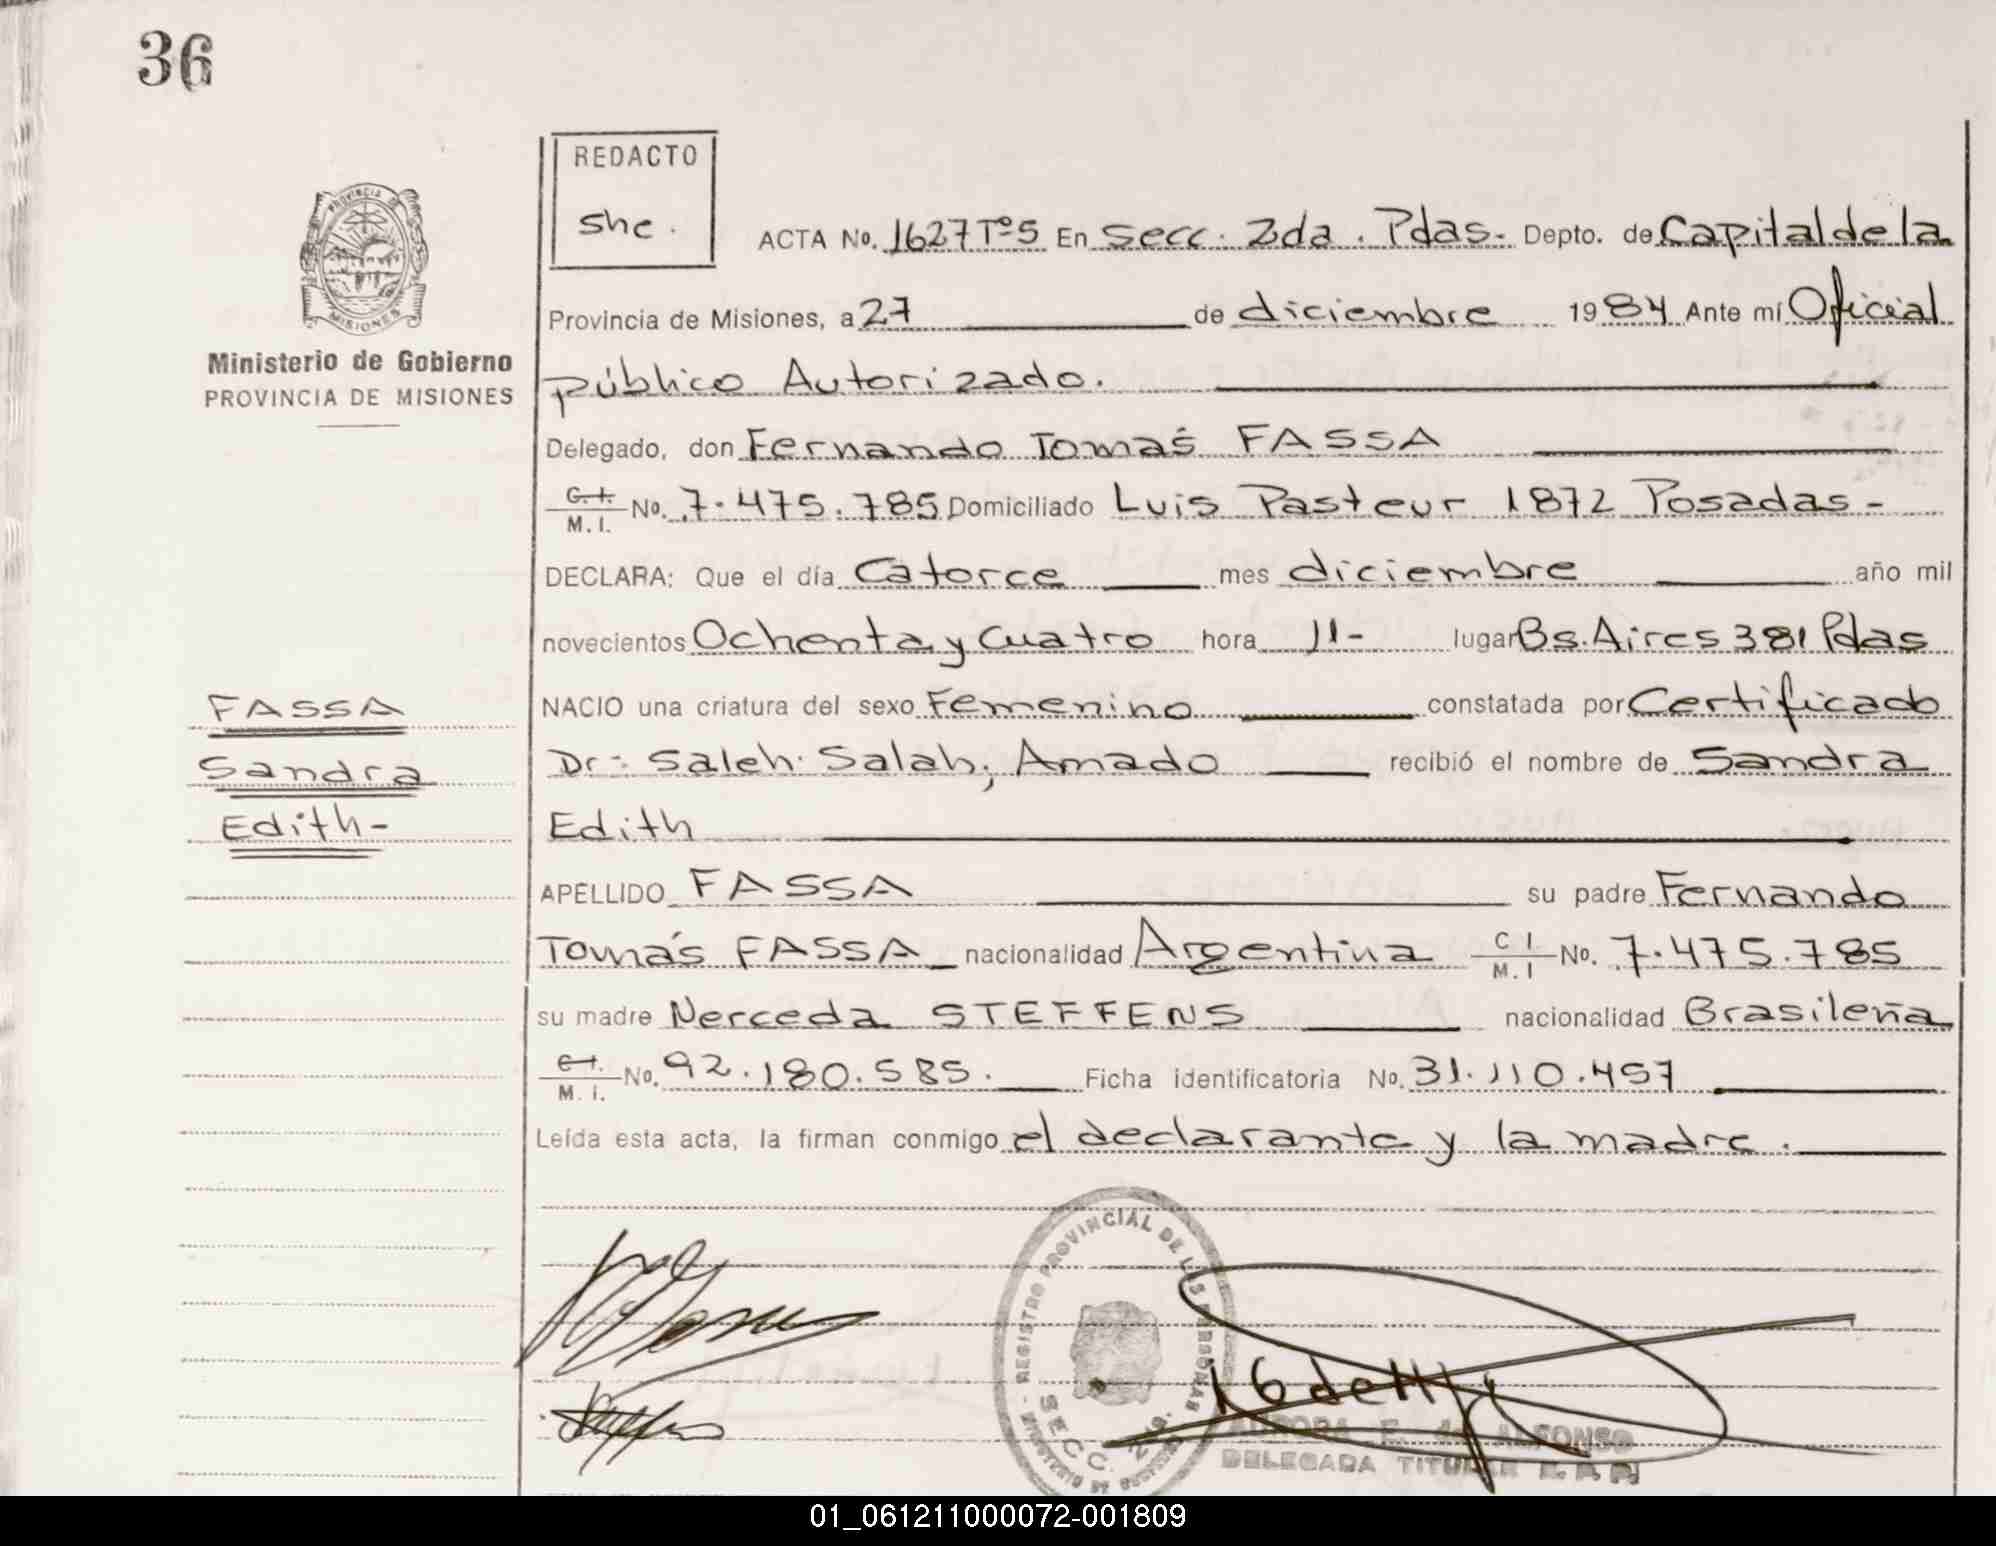 36
REDACTO
she.
PROVINCIA DE
MISIONES
Ministerio de Gobierno
PROVINCIA DE MISIONES
ACTA No. 1627 Tº5 En Secc. 2da. Pdas- Depto. de Capital de la
Provincia de Misiones, a 27 de diciembre 1984 Ante mí Oficial
público Autorizado.
Delegado, don Fernando Tomás FASSA
C.I. M.I. No. 7.475.785 Domiciliado Luis Pasteur 1872 Posadas-
DECLARA: Que el día Catorce mes diciembre año mil
novecientos Ochenta y Cuatro hora 11- lugar Bs. Aires 381 Pdas
FASSA
Sandra
Edith-
NACIO una criatura del sexo Femenino constatada por Certificado
Dr: Saleh Salah, Amado recibió el nombre de Sandra
Edith
APELLIDO FASSA su padre Fernando
Tomás FASSA nacionalidad Argentina C I M.I No. 7.475.785
su madre Nerceda STEFFENS nacionalidad Brasileña
C.I. M.I. No. 92.180.585. Ficha identificatoria No. 31.110.457
Leída esta acta, la firman conmigo el declarante y la madre.
REGISTRO PROVINCIAL DE LAS PERSONAS
SECC. 2da.
AURORA E. de ALFONSO
DELEGADA TITULAR
01_061211000072-001809